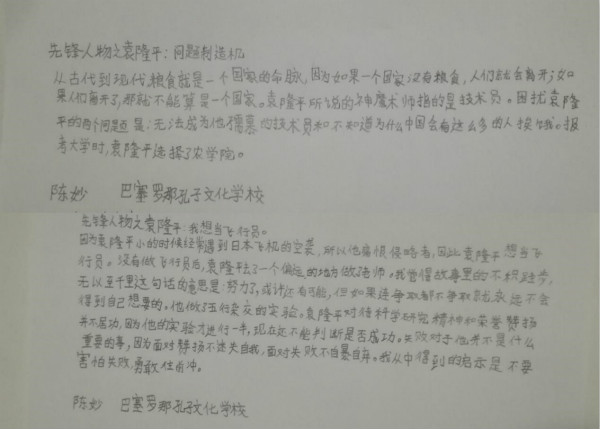 先锋人物之袁隆平：问题制造机
从古代到现代,粮食就是一个国家的命脉,因为如果一个国家没有粮食,人们就会离开;如
果人们离开了,那就不能算是一个国家。袁隆平所说的神魔术师指的是技术员。困扰袁隆
平的两个问题是:无法成为他 的技术员和不知道为什么中国会有这么多的人挨饿。报
考大学时,袁隆平选择了农学院。
陈妙 巴塞罗那孔子文化学校
先锋人物之袁隆平:我想当飞行员。
因为袁隆平小的时候经常遇到日本飞机的空袭,所以他痛恨侵略者,因此袁隆平想当飞
行员。没有做飞行员后,袁隆平去了一个偏远的地方做老师。我觉得故事里的不积跬步,
无以至千里这句话的意思是:努力了,或许还有可能,但如果连争取都不争取就永远不会
得到自己想要的。他做了 的实验。袁隆平对待科学研究精神和荣誉赞扬
并不居功,因为他的实验才进行一半,现在还不能判断是否成功。失败对于他来不是什么
重要的事,因为面对赞扬不迷失自我,面对失败不自暴自弃。我从中得到的启示是不要
害怕失败,勇敢往前冲。
陈妙 巴塞罗那孔子文化学校